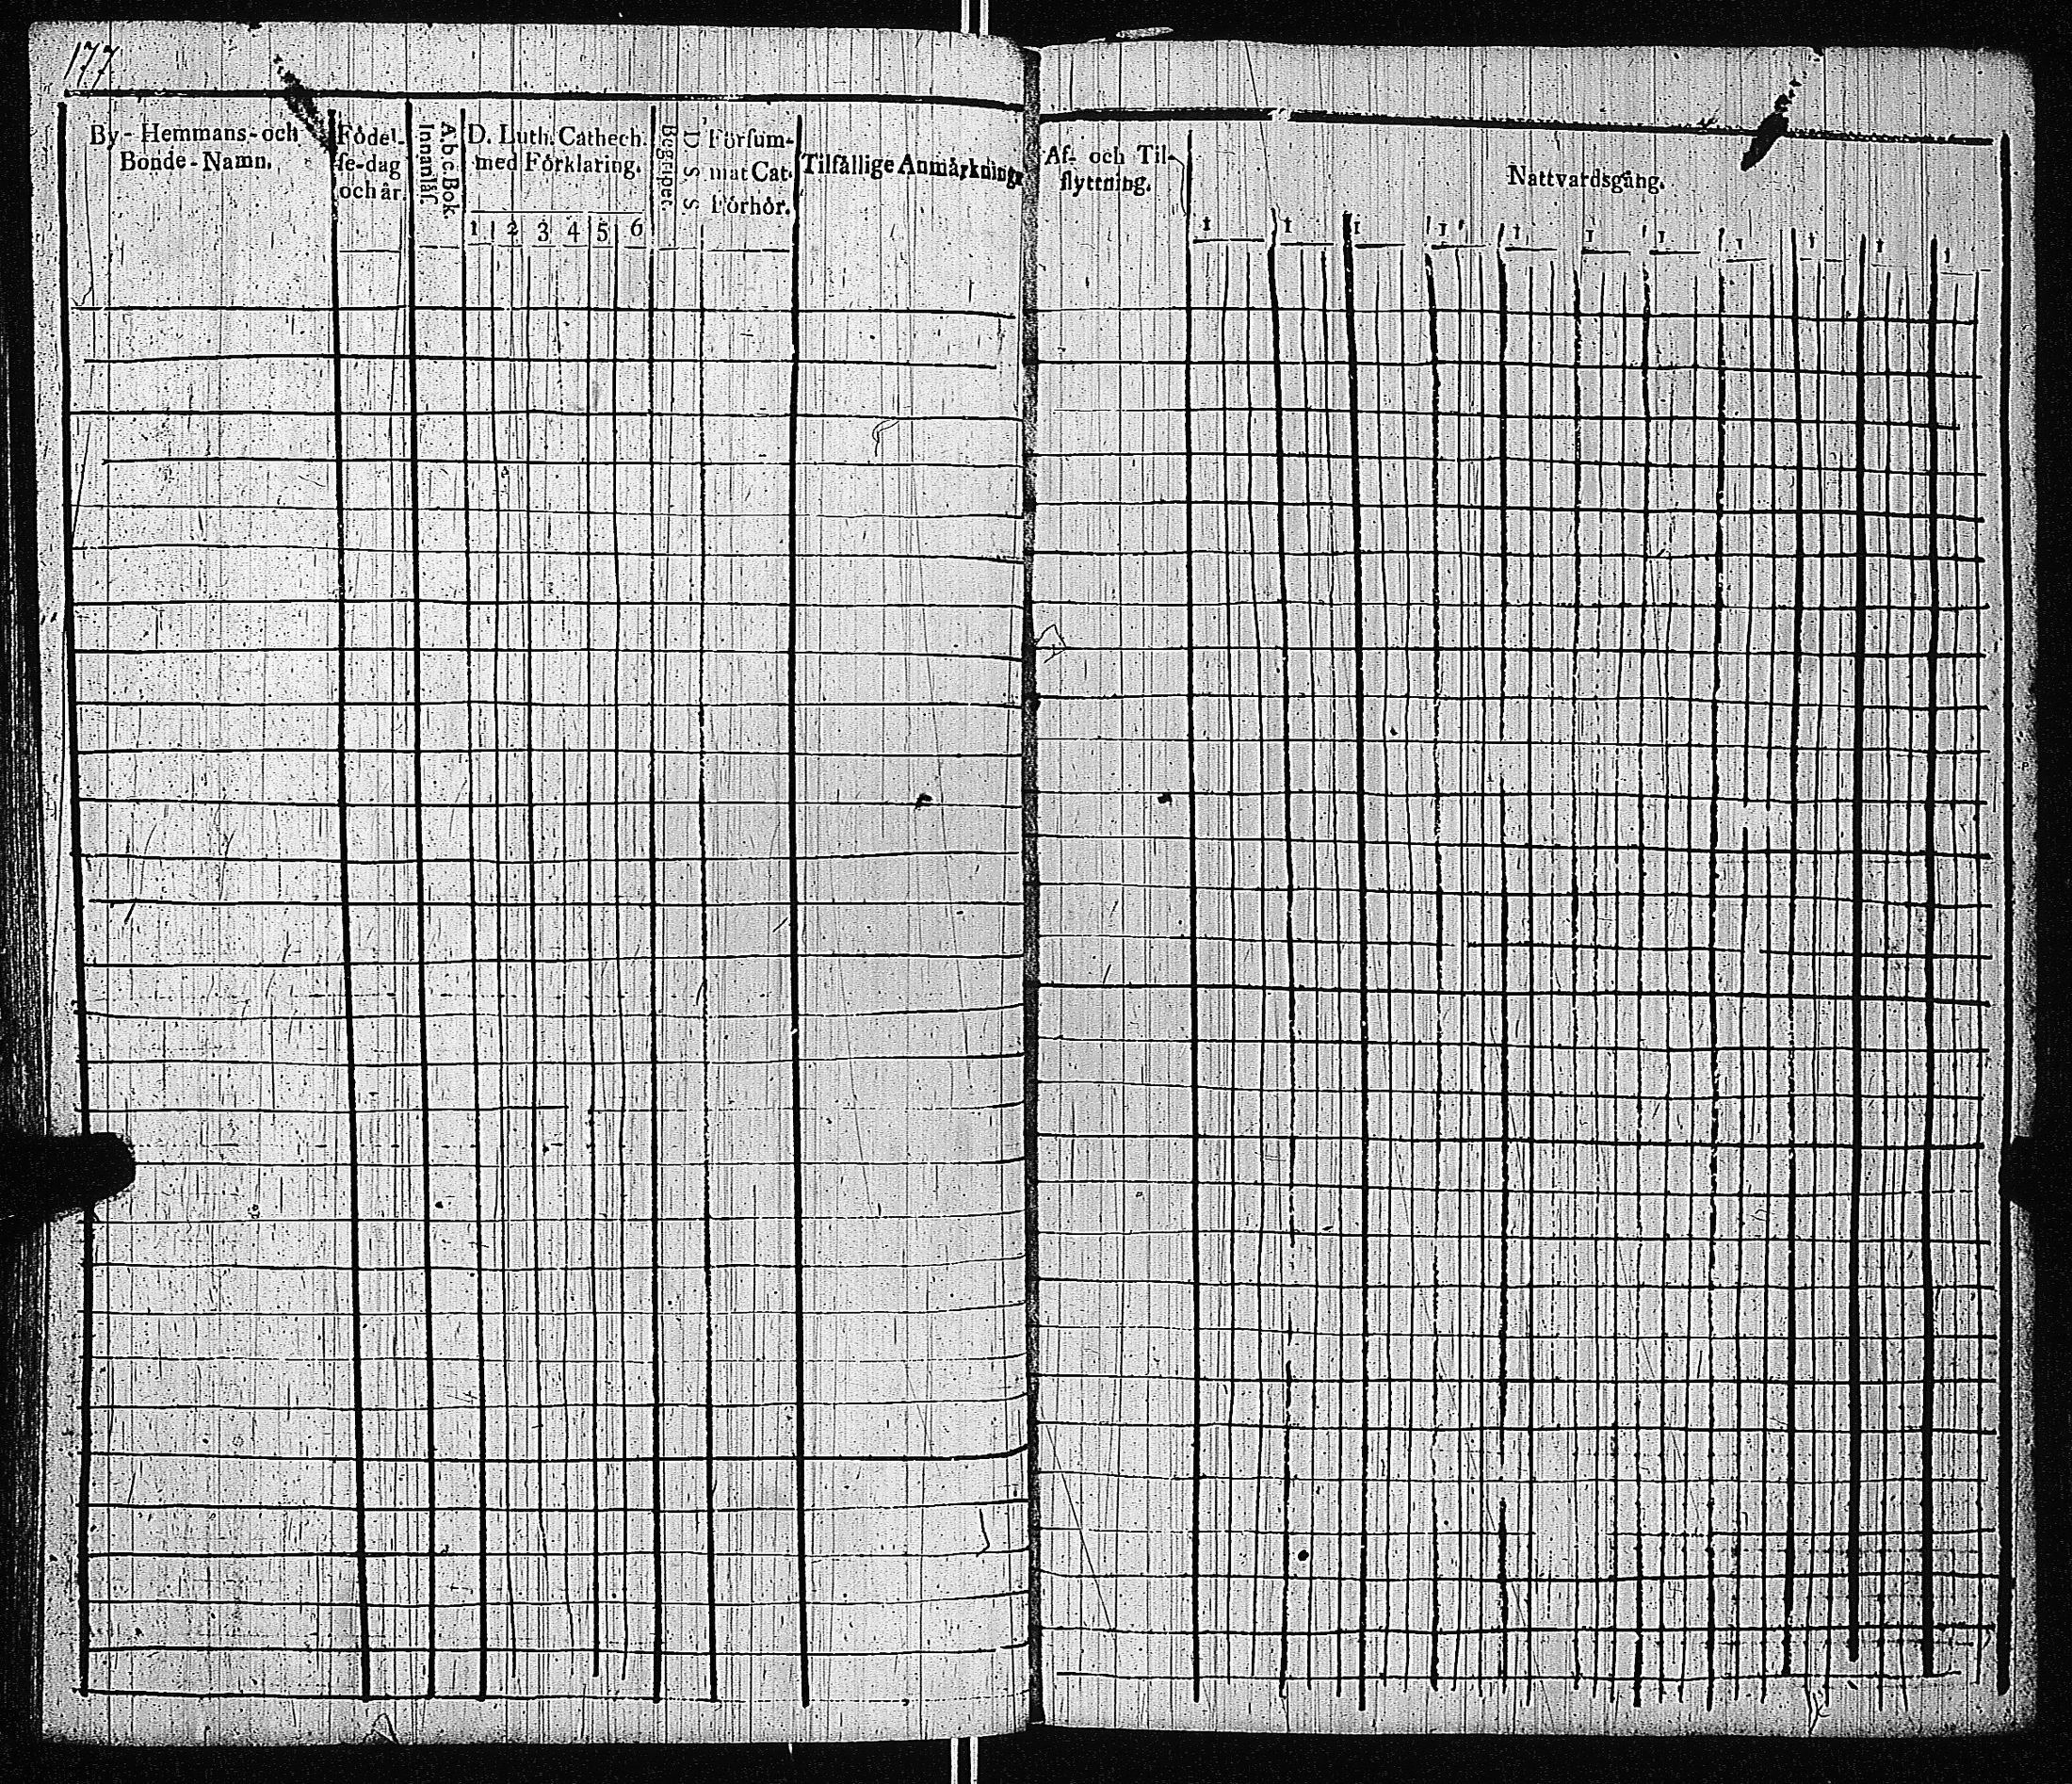 177
By- Hemmans- och
Bonde-Namn.
Födel-
se-dag
och år.
A.b.c.Bok.
Innanläs.
D. Luth. Cathech.
med Förklaring.
1 2 3 4 5 6
Begripet.
D. S. S.
Försum-
mat Cat.
Förhör.
Tilfällige Anmärkningr
Af- och Til-
flyttning.
Nattvardsgång.
1 1 1 1 1 1 1 1 1 1 1